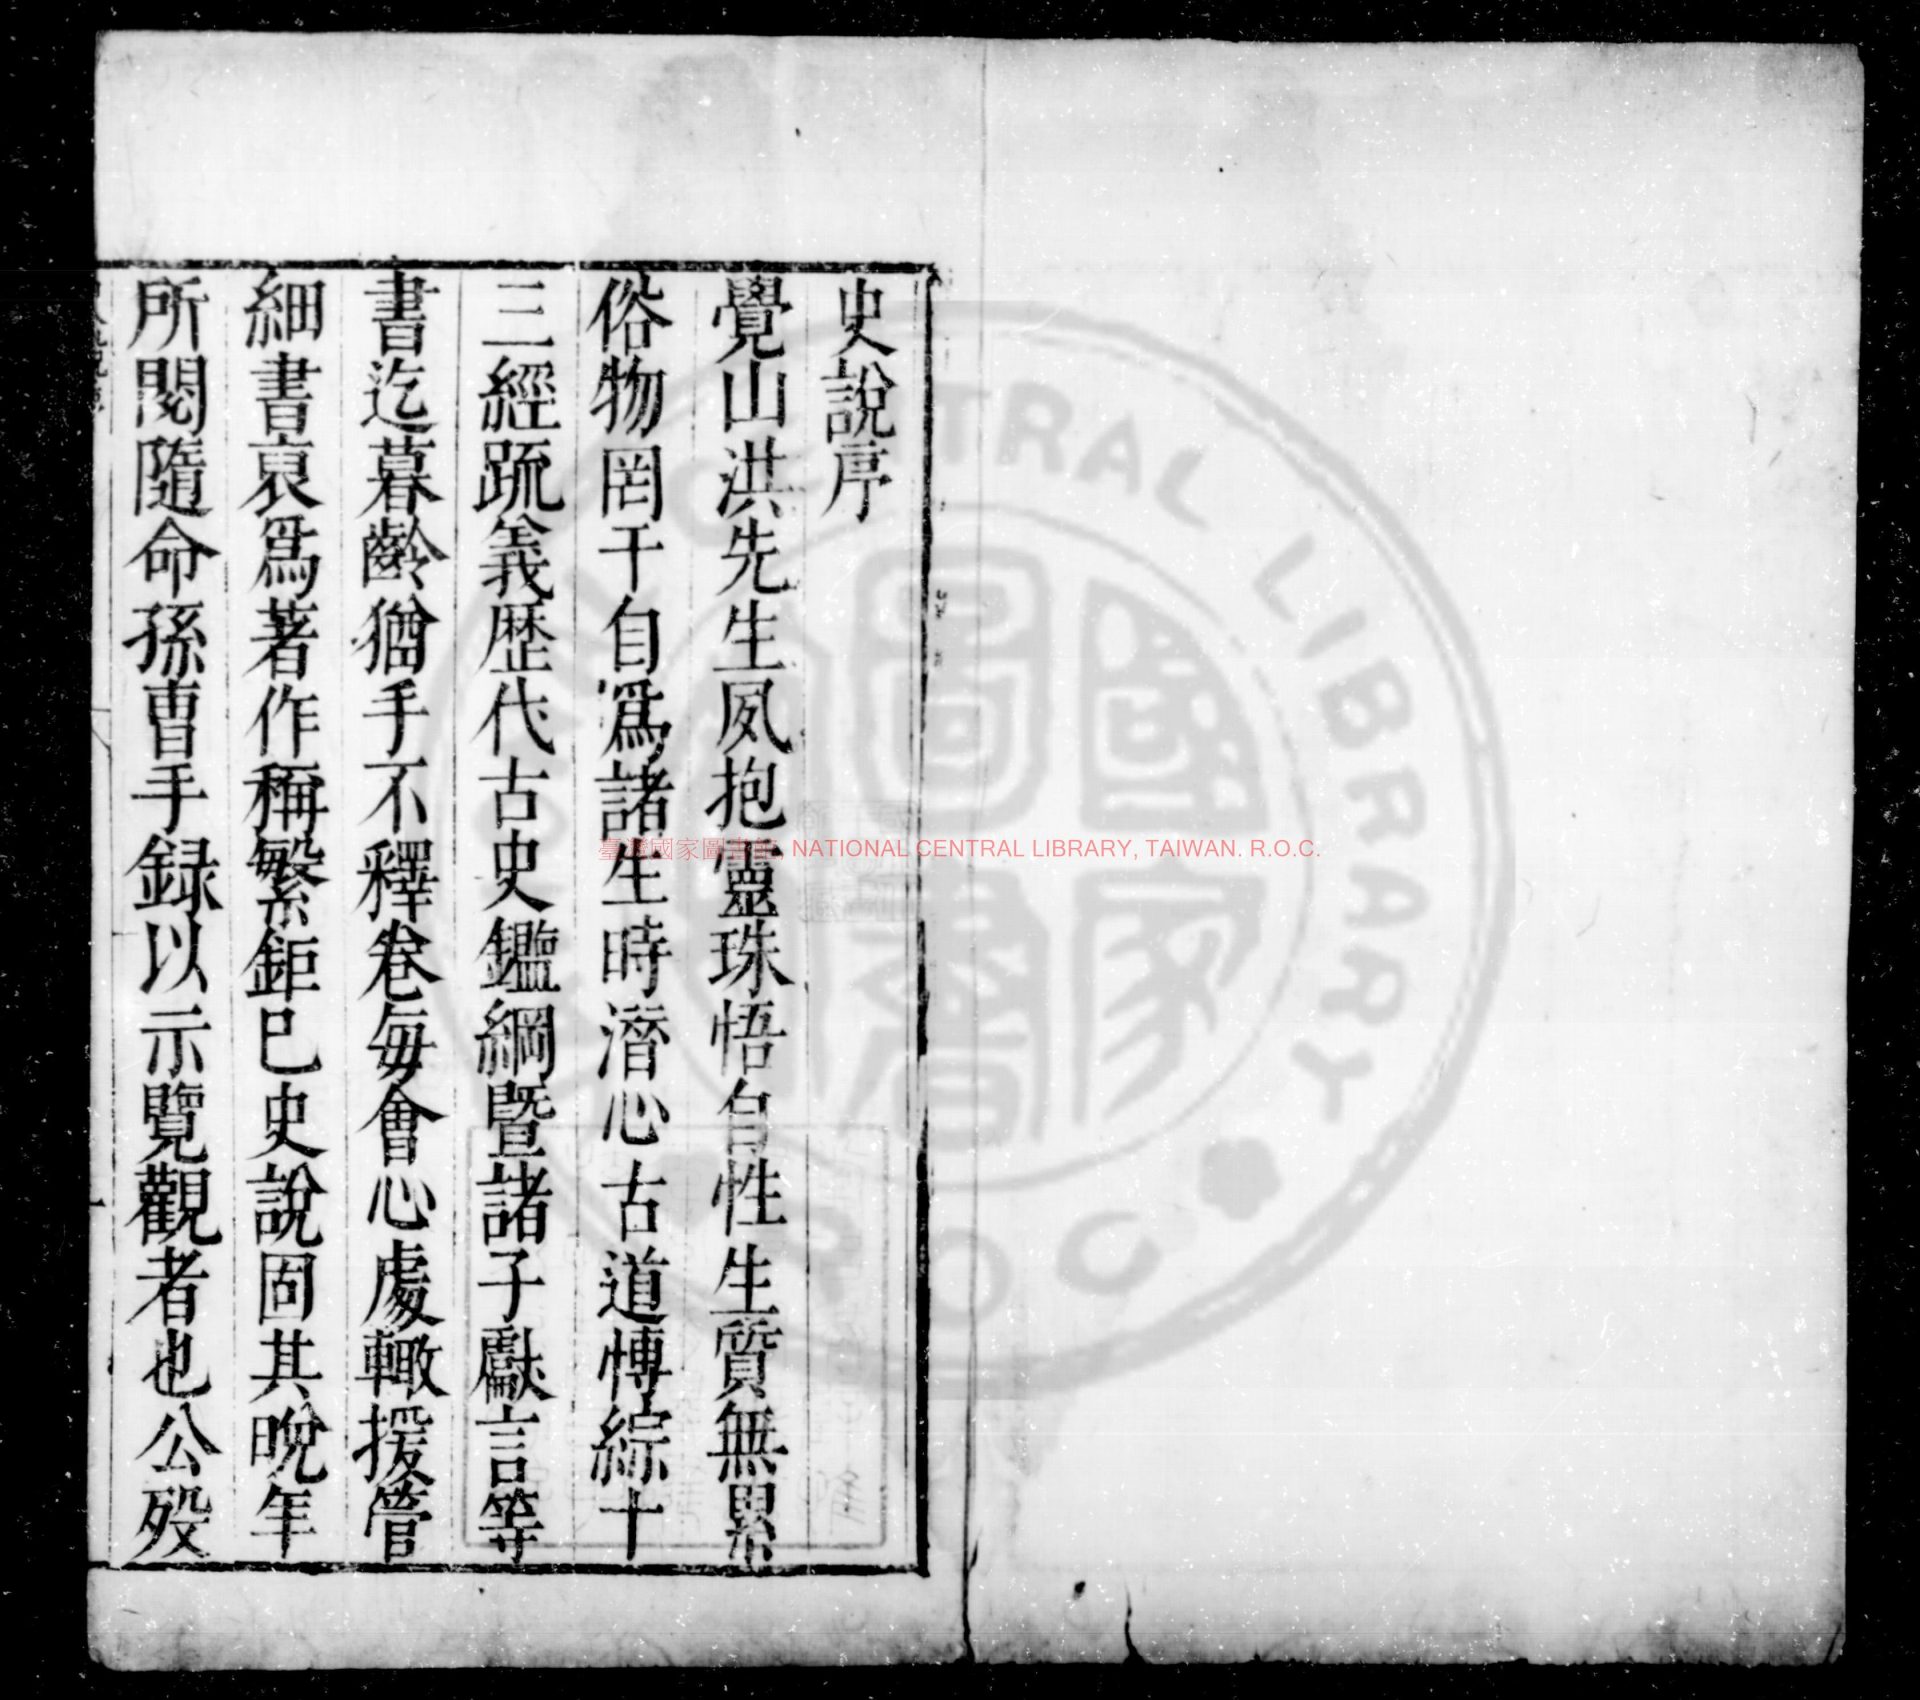 史說序
覺山洪先生夙抱靈珠悟自性生質無累
俗物罔干自爲諸生時潛心古道愽綜十
三經䟽義歷代古史鑑綱曁諸子獻言等
書迄暮齡猶手不釋卷每會心處輙援管
細書裒爲著作稱繁鉅巳史說固其晩年
所閱隨命孫曹手録以示覽觀者也公歿
臺灣國家圖書館, NATIONAL CENTRAL LIBRARY, TAIWAN. R.O.C.